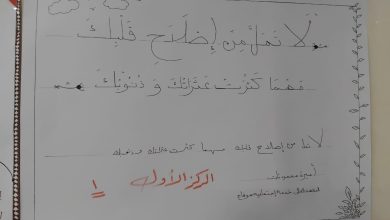 لَا تَمَلَّ مِنْ إِصْلَاحِ قَلْبِكَ
مَهْمَا كَثُرَتْ عَثَرَاتُكَ وَ ذُنُوبُكَ
لا تمل من إصلاح قلبك مهما كثرت عثراتك وذنوبك
أميرة محمود
المركز الأول
١